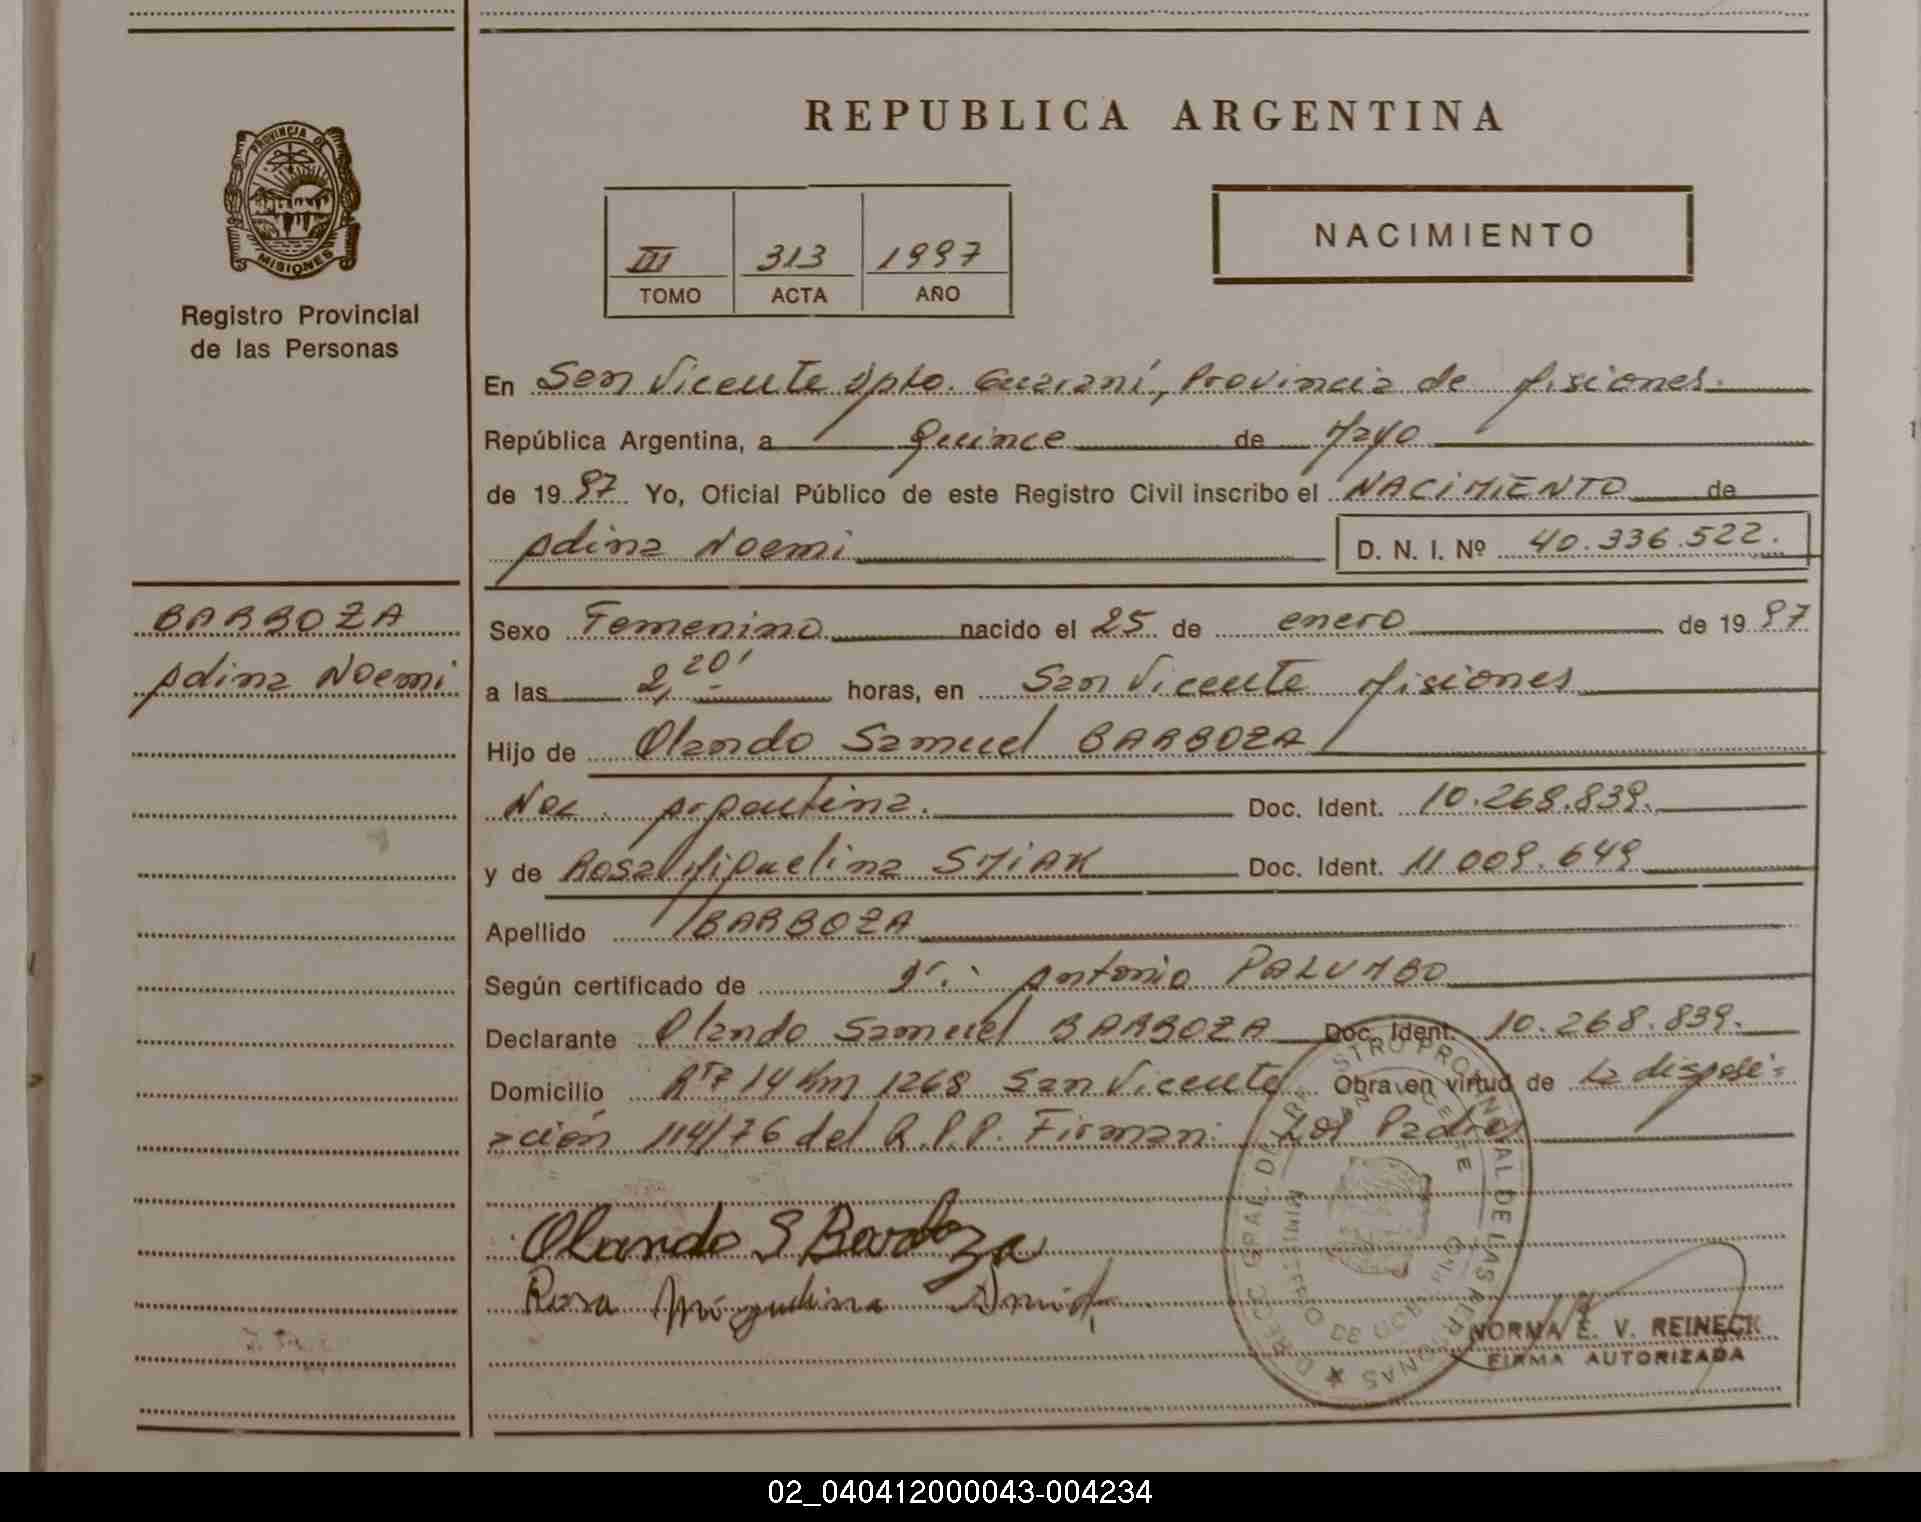 REPUBLICA ARGENTINA
PROVINCIA DE
MISIONES
Registro Provincial
de las Personas
III 313 1997
TOMO ACTA AÑO
NACIMIENTO
En San Vicente Dpto. Guaraní, Provincia de Misiones.
República Argentina, a Quince de Mayo
de 1997 Yo, Oficial Público de este Registro Civil inscribo el NACIMIENTO de
Adina Noemi D. N. I. Nº 40.336.522.
BARBOZA
Adina Noemi
Sexo Femenino nacido el 25 de enero de 1997
a las 2,20' horas, en San Vicente Misiones
Hijo de Olando Samuel BARBOZA
Nac. Argentina. Doc. Ident. 10.268.839.
y de Rosa Miguelina SMIAK Doc. Ident. 11.009.649
Apellido BARBOZA
Según certificado de Dr. Antonio PALUMBO
Declarante Olando Samuel BARBOZA Doc. Ident. 10.268.839.
Domicilio Rta 14 Km 1268 San Vicente Obra en virtud de la disposi-
ación 114/76 del R.P.P. Firman: Los Padres
Olando S Barboza
Rosa Miguelina
NORMA E. V. REINECK
FIRMA AUTORIZADA
02_040412000043-004234